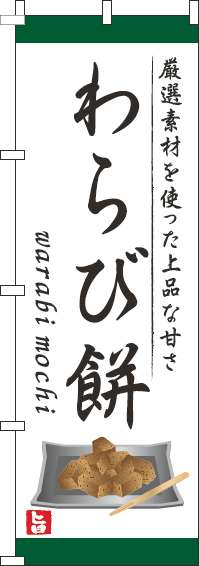 厳選素材を使った上品な甘さ
わらび餅
warabi mochi
旨